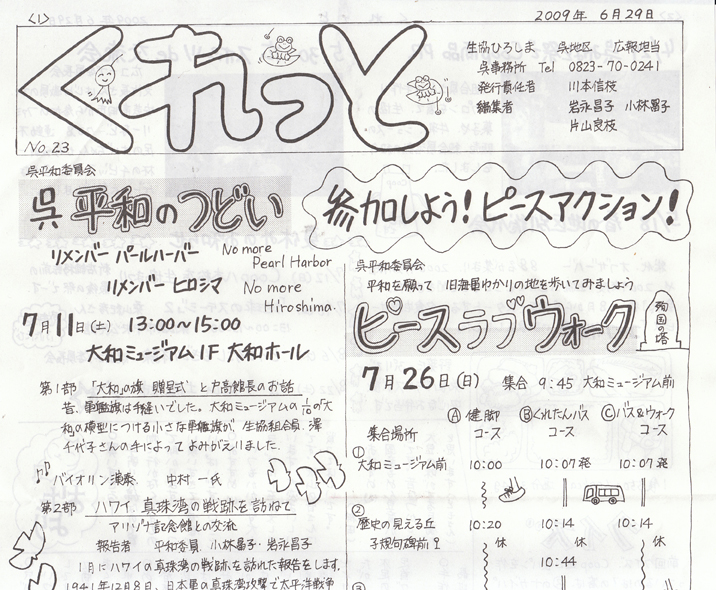 <1>
2009年 6月29日
くれっと
No.23
生協ひろしま 呉地区 広報担当
呉事務所 Tel 0823-70-0241
発行責任者 川本信枝
編集者 岩永昌子 小林暑子
片山良枝
呉平和委員会
呉 平和のつどい
リメンバー パールハーバー No more Pearl Harbor
リメンバー ヒロシマ No more Hiroshima.
7月11日(土) 13:00～15:00
大和ミュージアム1F 大和ホール
第1部 「大和」の旗 贈呈式 と戸高館長のお話
昔、軍艦旗は手縫いでした。大和ミュージアムの1/10の「大
和」の模型につける小さな軍艦旗が、生協組合員、澤
千代子さんの手によってよみがえりました。
バイオリン演奏 中村一氏
第2部 ハワイ、真珠湾の戦跡を訪ねて
アリゾナ記念館との交流
報告者 平和委員 小林暑子・岩永昌子
1月にハワイの真珠湾の戦跡を訪れた報告をします。
1941年12月8日、日本軍の真珠湾攻撃で太平洋戦争
参加しよう！ピースアクション！
呉平和委員会
平和を願って 旧海軍ゆかりの地を歩いてみましょう
ピースラブウォーク
殉国の塔
7月26日(日) 集合 9:45 大和ミュージアム前
集合場所 Ⓐ健脚コース Ⓑくれたんバスコース Ⓒバス&ウォークコース
① 大和ミュージアム前 10:00 10:07発 10:07発
② 歴史の見える丘 10:20 10:14 10:14
子規句碑前 休 休 休
10:44
③